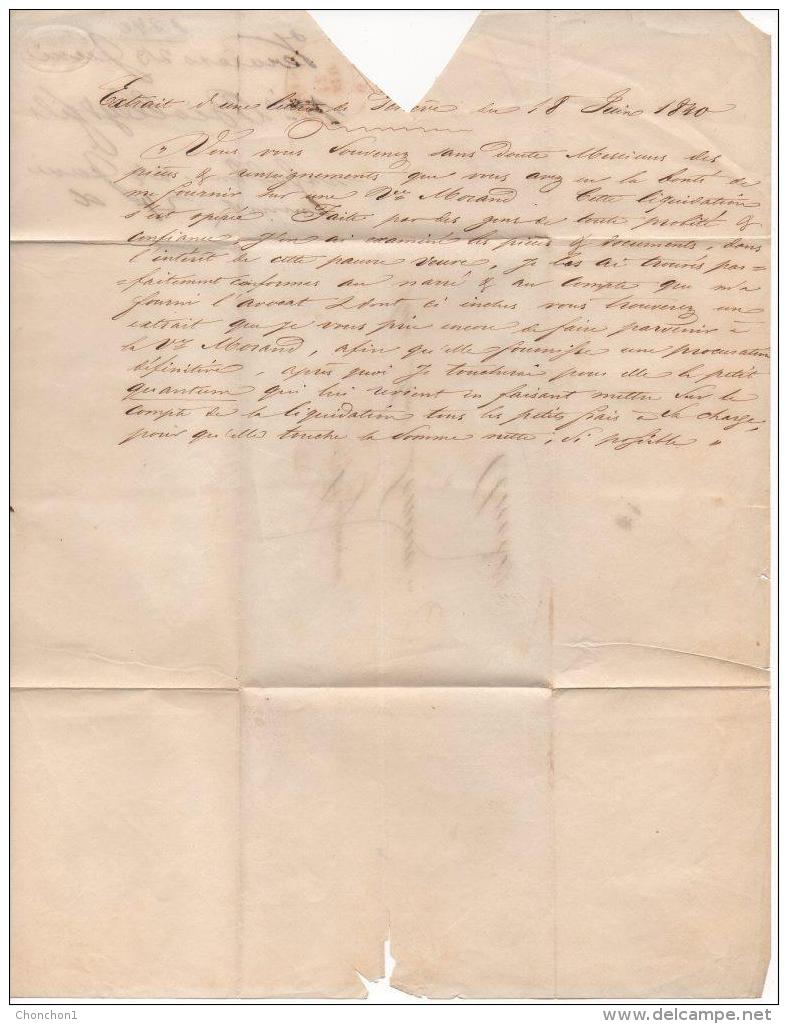 Extrait d'une lettre de Genève du 18 Juin 1840
" Vous vous souvenez sans doute Messieurs des
pièces & renseignements que vous avez eu la bonté de
me fournir sur une Ve Morand. Cette liquidation
s'est opérée. Faite par des gens de toute probité &
confiance, J'en ai examiné les pièces & documents, dans
l'intérêt de cette pauvre veuve, Je les ai trouvés par=
=faitement conformes au narré & au compte que m'a
fourni l'avocat & dont ci inclus vous trouverez un
extrait que je vous prie encore de faire parvenir à
la Ve Morand, afin qu'elle fournisse une procuration
définitive, après quoi Je toucherai pour elle le petit
quantum qui lui revient en faisant mettre sur le
compte de la liquidation tous les petits frais à sa charge,
pour qu'elle touche la somme nette, si possible "
Chonchon1
www.delcampe.net